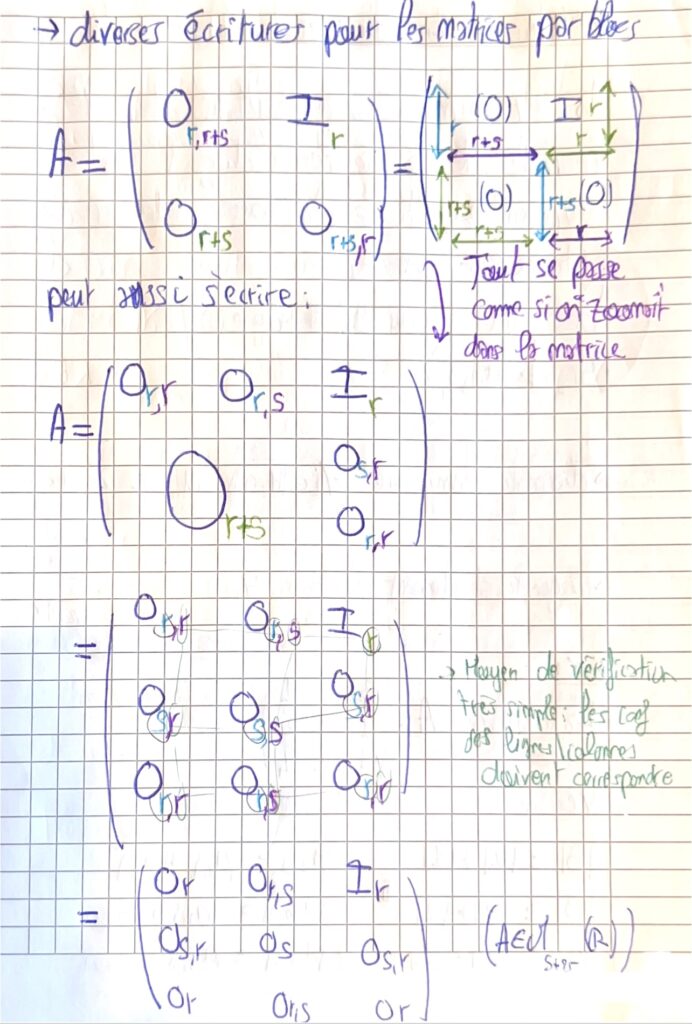 → diverses écritures pour les matrices par blocs
A = ( O r,r+s I r ; O r+s O r+s,r ) = ( r (O) r+s I r r ; r+s (O) r+s r+s (O) r )
Tout se passe
comme si on zoomait
dans la matrice
peut aussi s'écrire :
A = ( O r,r O r,s I r ; O r+s O s,r ; O r,r )
= ( O r,r O r,s I r
O s,r O s,s O s,r
O r,r O r,s O r,r )
→ Moyen de vérification
très simple : les coef
des lignes/colonnes
doivent correspondre
= ( O r O r,s I r
O s,r O s O s,r
O r O r,s O r )
(A ∈ M s+2r (R))